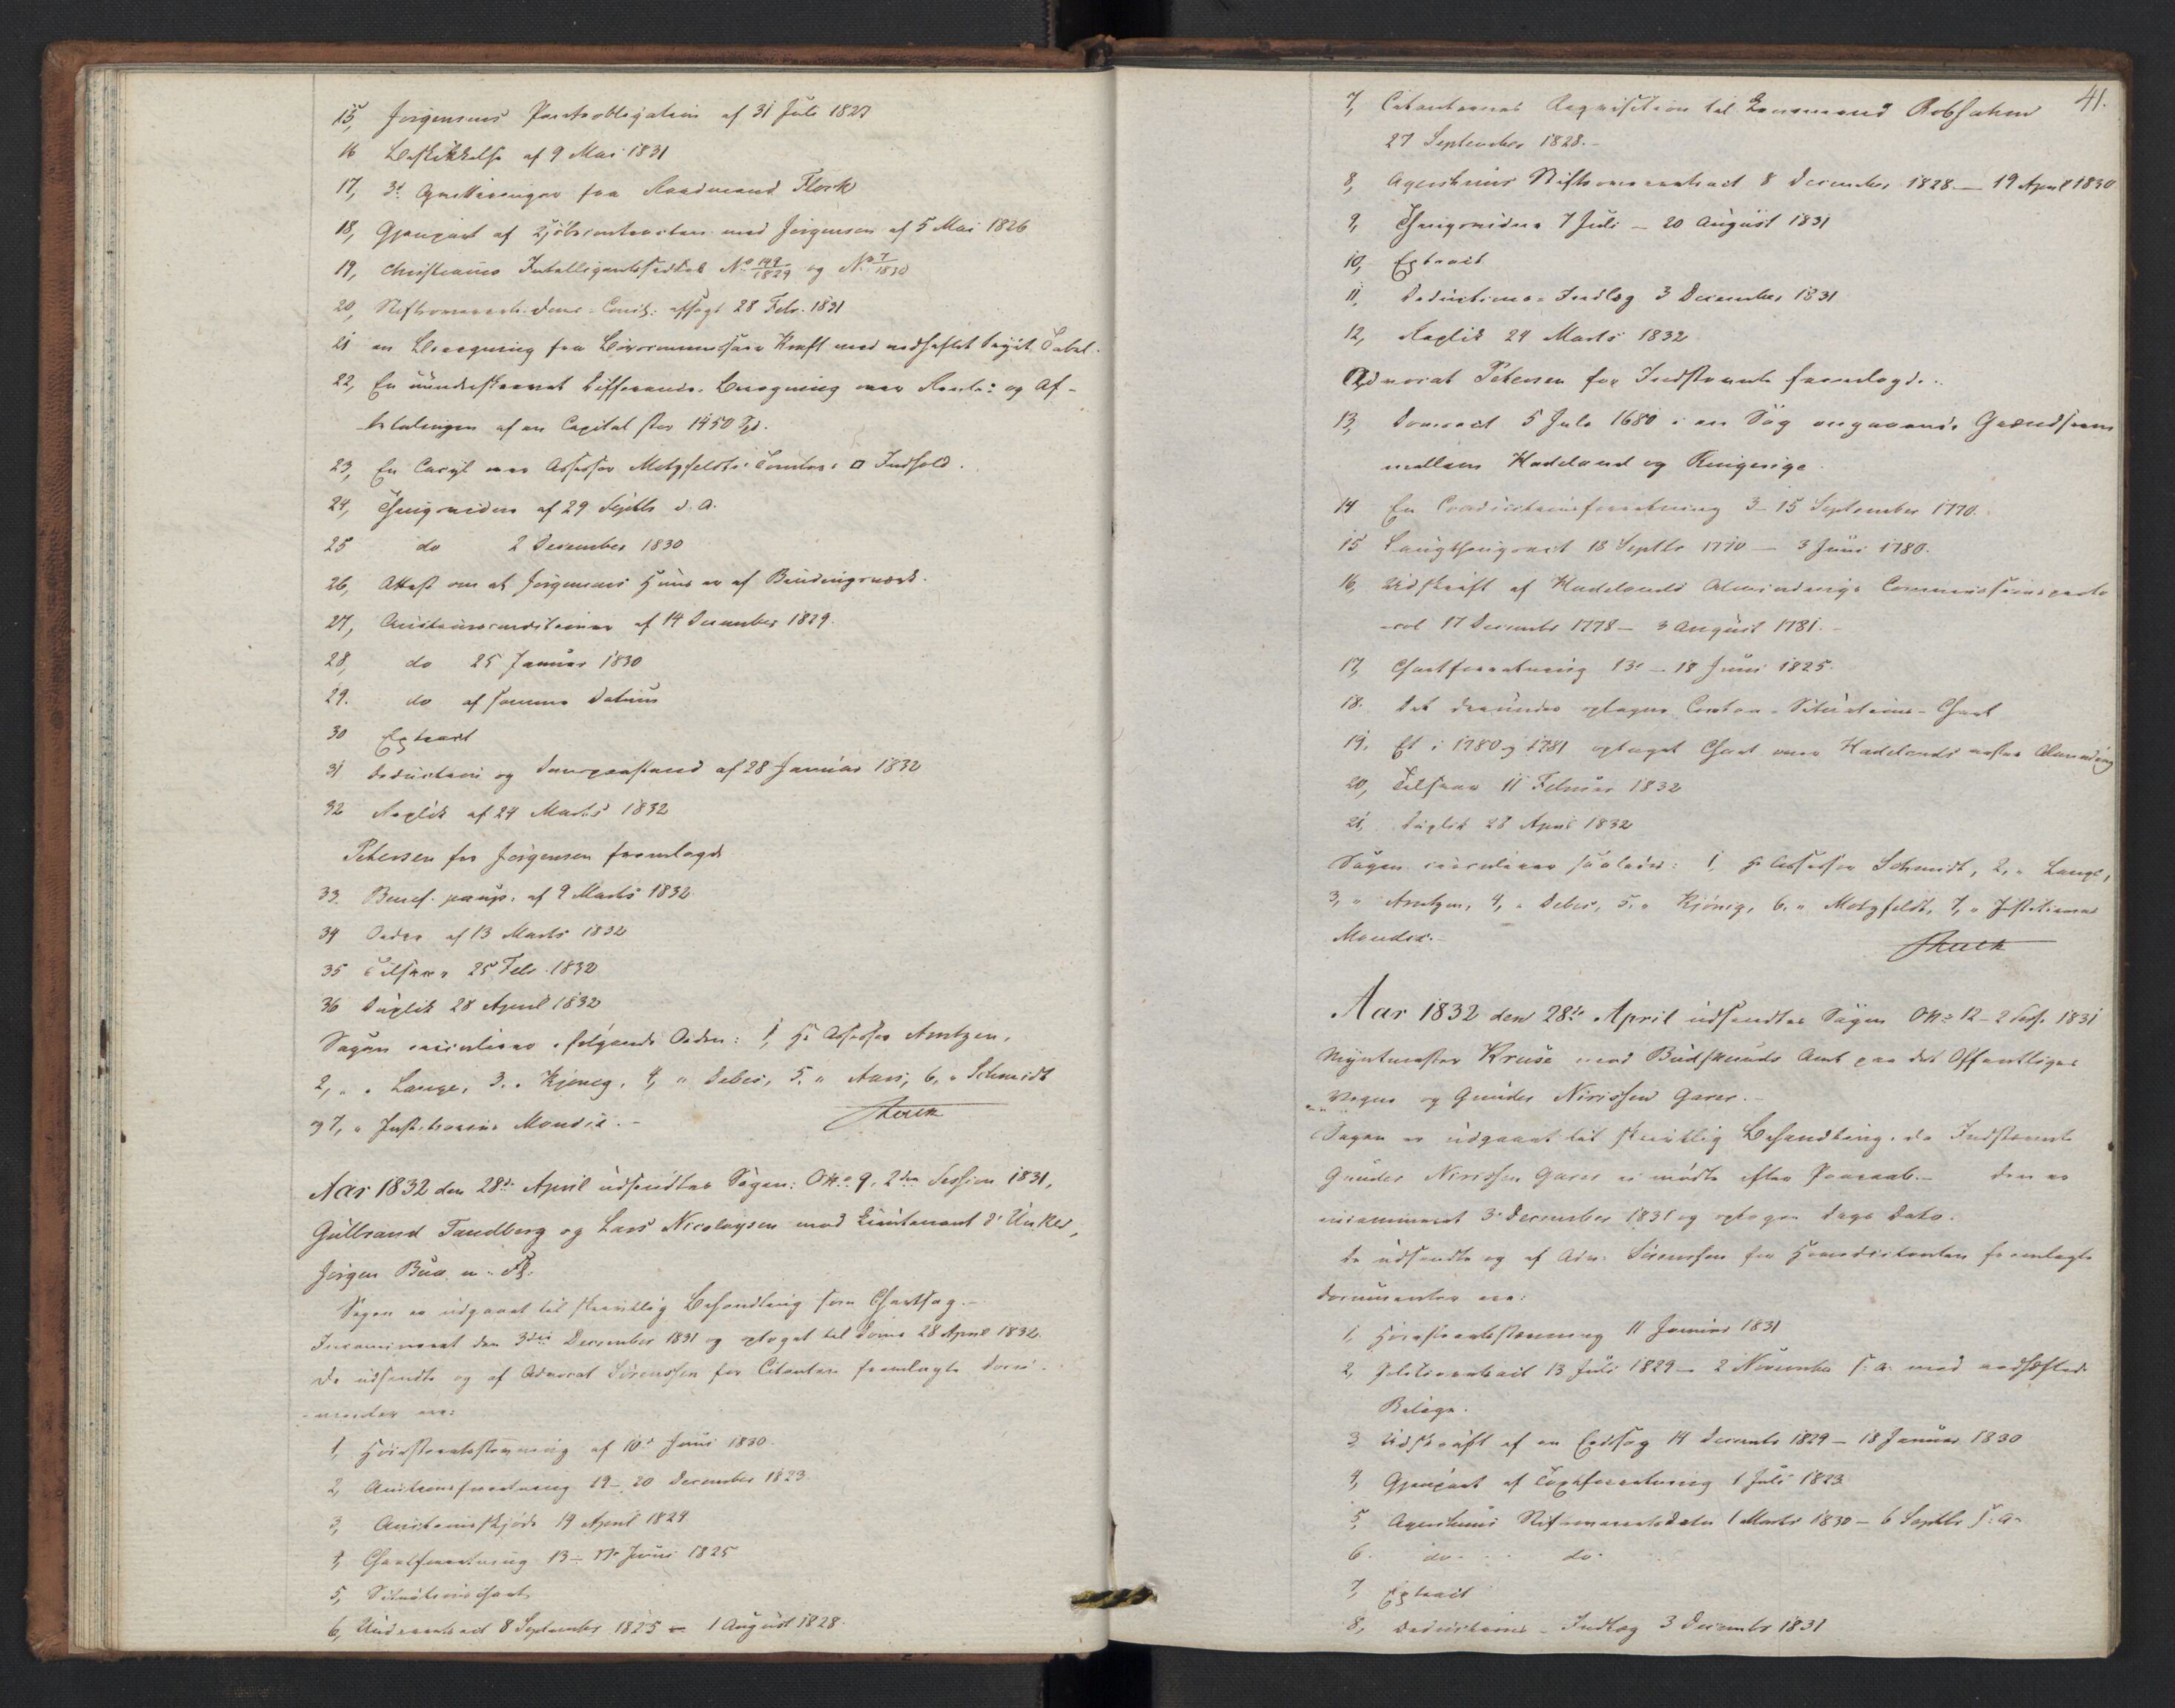 15, Jørgensens Panteobligation af 31 Juli 1827
16 Beskikkelse af 9 Mai 1831
17, 3de Qvitteringer fra Raadmand Flock
18, Gjenpart af Kjøbecontracten med Jørgensen af 5 Mai 1826
19, Christiania Intelligentssedler No 149/1829 og No 7/1830
20, Stiftsoverrets-Doms-Concl: afsagt 28 Febr. 1831
21 en Beregning fra Bancocommissair Kraft med vedheftet trygt Tabel.
22, En ununderskrevet Differents-Beregning over Rente- og Af-
betalingen af en Capital stor 1450 Spd.
23, En Caryt over Assessor Motzfeldts Tomters □ Indhold.
24, Thingsvidne af 29 Septbr d. A.
25 do 2 December 1830
26, Attest om at Jørgensens Huus er af Bindingsværk.
27, Auctionsconditioner af 14 December 1829.
28, do 25 Januar 1830
29. do af samme Datum
30 Extract
31 Deduction og Dompaastand af 28 Januar 1832
32 Replik af 24 Marts 1832
Petersen for Jørgensen fremlagde
33. Benef. paup. af 9 Marts 1832
34 Orden af 13 Marts 1832
35 Tilsvar 25 Febr. 1832
36 Duplik 28 April 1832
Sagen circulerer i følgende Orden: 1, Hr Assessor Arntzen,
2, " Lange, 3. " Kjønig, 4, " Debes, 5. " Aars, 6, " Schmidt
og 7, " Justitiarius Mandix.-
Aar 1832 den 28de April udsendtes Sagen: O No 9, 2den Session 1831,
Gulbrand Tandberg og Lars Nicolaysen mod Lieutenant d'Unker,
Jørgen Bua m. Fl.
Sagen er udgaaet til skriftlig Behandling som Chartsag.-
Incamineret den 3die December 1831 og optaget til Doms 28 April 1832.
De udsendte og af Advocat Sørenssen for Citanten fremlagte Docu-
-menter ere:
1, Høiesteretsstævning af 10de Juni 1830.
2, Auctionsforretning 19-20 December 1823.
3, Auctionsskjøde 19 April 1824
4, Chartforretning 13- Juni 1825
5, Situationschart
6, Underretsact 8 September 1825 - 1 August 1828.
41.
7, Citanternes Reqvisition til Lensmand Robsahm
27 September 1828.-
8, Agershuus Stiftsoverretsact 8 December 1828 - 19 April 1830
9, Thingsvidne 7 Juli - 20 August 1831
10, Extract
11, Deductions-Indlæg 3 December 1831
12, Replik 24 Marts 1832
Advocat Petersen for Indstævnte fremlagde.
13, Domsact 5 Juli 1680 i en Sag angaaende Grændsen
mellem Hadeland og Ringerige.
14 En Conductionsforretning 3-15 September 1770.
15 Langthingsact 18 Septbr 1770 - 3 Juni 1780.
16, Udskrift af Hadelands Almindings Commissionsproto
-col 17 Decembr 1778 - 3 August 1781.-
17, Chartforretning 13 - 18 Juni 1825.
18. Det derunder optagne Contra-Situations-Chart
19, Et i 1780 og 1781 optaget Chart over Hadelands vestre Alminding
20, Tilsvar 11 Februar 1832
21, Duplik 28 April 1832
Sagen circulerer saaledes: 1, Hr Assessor Schmidt, 2, " Lange,
3, " Arntzen, 4, " Debes, 5, " Kjønig, 6. " Motzfeldt, 7, " Justitiarius
Mandix.-
Aar 1832 den 28de April udsendtes Sagen O No 12 - 2 Sess. 1831
Myntmester Kruse mod Budskeruds Amt paa det Offentliges
Vegne og Gunder Nirissen Garer.-
Sagen er udgaaet til skriftlig Behandling, da Indstævnte
Gunder Nirissen Garer ei mødte efter Paaraab.- Den er
incamineret 3de December 1831 og optagen Dags Dato.
De udsendte og af Adv. Sørenssen for Hovedcitanten fremlagte
Documenter ere:
1, Høiesteretsstævning 11 Januar 1831
2, Politieretsact 13 Juli 1829 - 2 November s: A: med vedheftede
Bilage.
3, Udskrift af en Eedsag 14 Decembr 1829 - 18 Januar 1830
4, Gjenpart af Taxtforretning 1 Juli 1823
5, Agershuus Stiftsoverretsacter 1 Marts 1830 - 6 Septbr s: A:
6. do do
7, Extract
8, Deductions-Indlæg 3 Decembr 1831